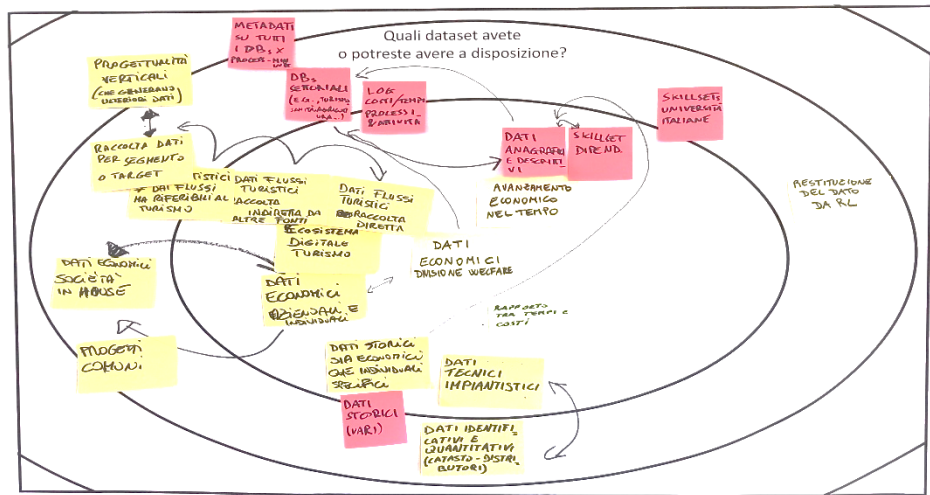 Quali dataset avete
o potreste avere a disposizione?
METADATI
SU TUTTI
I DBs X
PROGETTUALITÀ
VERTICALI
(CHE GENERANO
ULTERIORI DATI)
DBs
SETTORIALI
LOG
COSTI/TEMPI
PROCESSI
& ATTIVITÀ
SKILLSETS
UNIVERSITÀ
ITALIANE
DATI
ANAGRAFICI
E DESCRITTI-
VI
SKILLSET
DIPEND.
RACCOLTA DATI
PER SEGMENTO
O TARGET
TISTICI
≠ DAI FLUSSI
MA RIFERIBILI AL
TURISMO
DATI FLUSSI
TURISTICI
RACCOLTA
INDIRETTA DA
ALTRE FONTI
DATI FLUSSI
TURISTICI
RACCOLTA
DIRETTA
AVANZAMENTO
ECONOMICO
NEL TEMPO
RESTITUZIONE
DEL DATO
DA RL
ECOSISTEMA
DIGITALE
TURISMO
DATI
ECONOMICI
DIVISIONE WELFARE
DATI ECONOMICI
SOCIETÀ
IN HOUSE
DATI
ECONOMICI
AZIENDALI E
INDIVIDUALI
RAPPORTO
TRA TEMPI E
COSTI
PROGETTI
COMUNI
DATI STORICI
SIA ECONOMICI
CHE INDIVIDUALI
SPECIFICI
DATI
TECNICI
IMPIANTISTICI
DATI
STORICI
(VARI)
DATI IDENTIFI-
CATIVI E
QUANTITATIVI
(CATASTO-DISTRI
BUTORI)